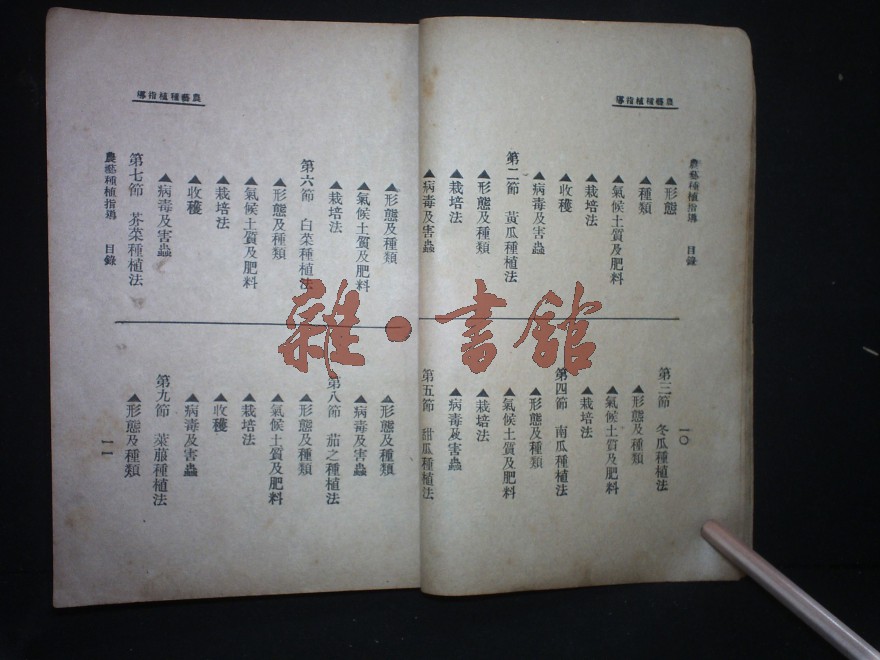 農藝種植指導
農藝種植指導 目錄
一〇
▲形態
▲種類
▲氣候土質及肥料
▲栽培法
▲收穫
▲病毒及害蟲
第二節 黃瓜種植法
▲形態及種類
▲栽培法
▲病毒及害蟲
第三節 冬瓜種植法
▲形態及種類
▲氣候土質及肥料
▲栽培法
第四節 南瓜種植法
▲形態及種類
▲氣候土質及肥料
▲栽培法
▲病毒及害蟲
第五節 甜瓜種植法
農藝種植指導
▲形態及種類
▲氣候土質及肥料
▲栽培法
第六節 白菜種植法
▲形態及種類
▲氣候土質及肥料
▲栽培法
▲收穫
▲病毒及害蟲
第七節 芥菜種植法
▲形態及種類
▲病毒及害蟲
第八節 茄之種植法
▲形態及種類
▲氣候土質及肥料
▲栽培法
▲收穫
▲病毒及害蟲
第九節 萊菔種植法
▲形態及種類
農藝種植指導 目錄
一一
雜·書館